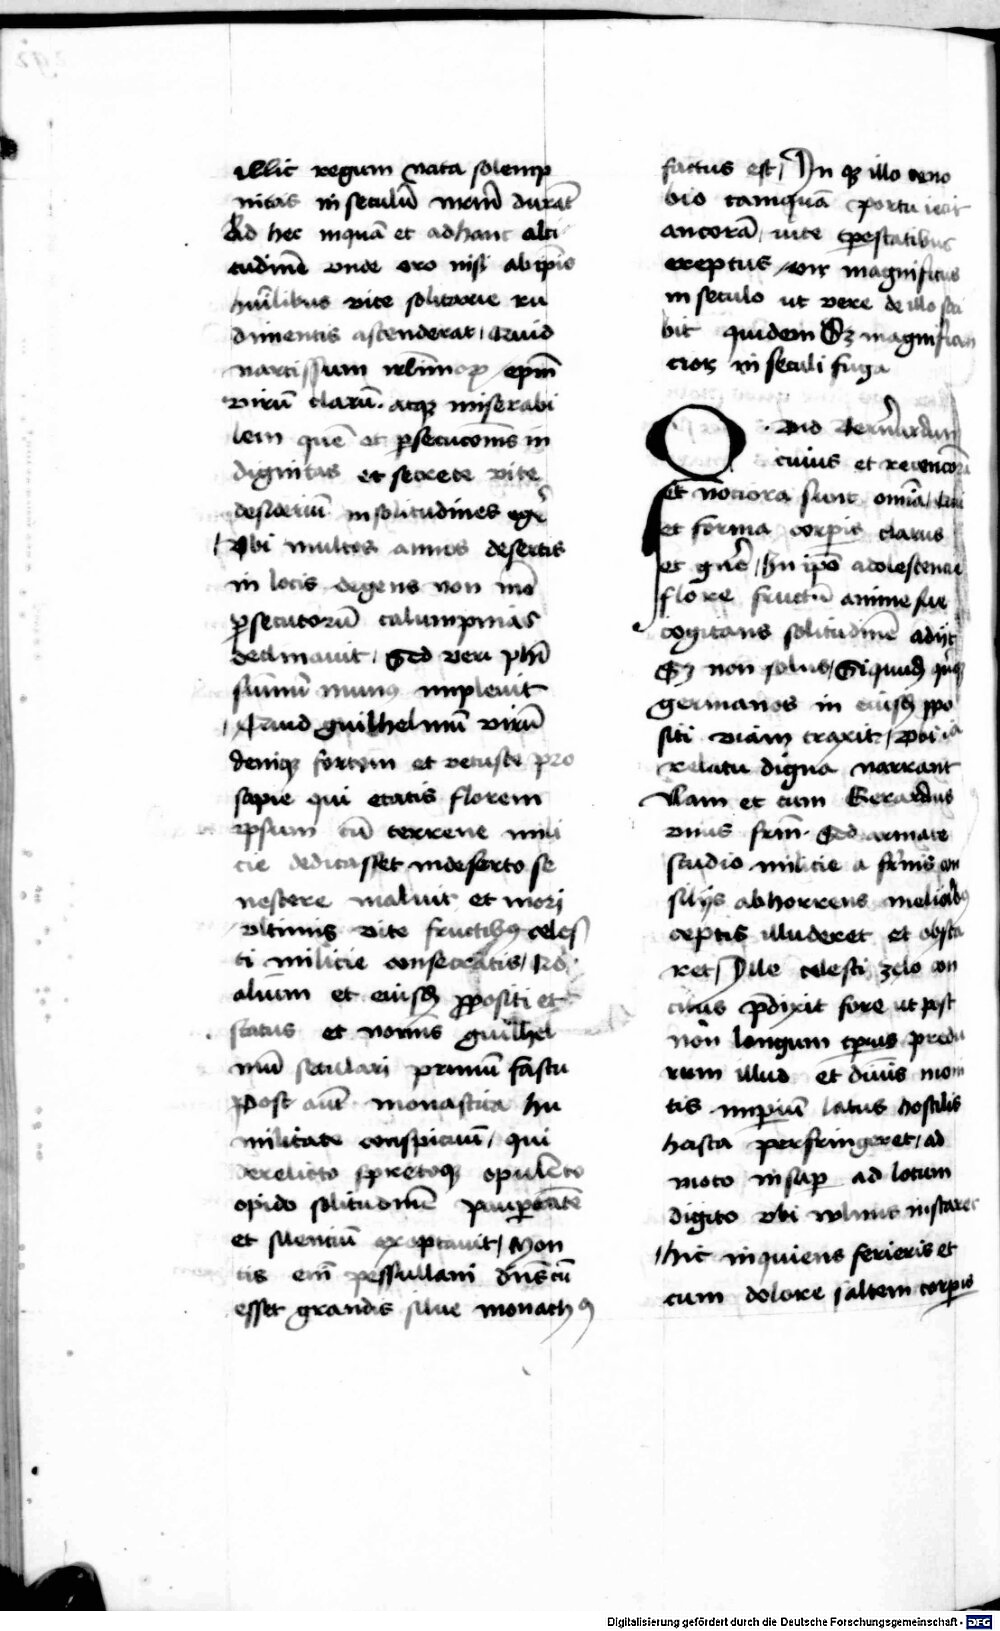 illic regum nata solemp
nitas in seculū nr̄m̄ durat̄
Ad hec inquā et ad hanc alti
tudinē unde oro nisi ab ip̄is
hūilibus vite solitarie ru
dimentis ascenderat / Quid
narcissum epm̄
virū clarū. atqȝ miserabi
lem quē et ꝑsecucionis in
dignitas et secrete vite
desideriū in solitudines eḡr
/ Vbi multos annos desertis
in locis degens non mō
ꝑsecutorū calumpnias
declinavit / Sed veri ph̄i
sūmū munꝰ implevit
/ Quid guilhelmū virū
deniqȝ fortem et vetuste pro
sapie qui etatis florem
ipsum cū terrene mili
cie dedicasset in deserto se
nescere maluit et mori
vltimis vite fructibꝰ celes
ti milicie consecratis /
alium et eiusdē ꝓpositi et
status et nominis guilhel
mū seculari primū fastu
Post aūt monastica hu
militate conspicuū / qui
derelicto spretoqȝ opulēto
opido solitudinē paupertatē
et silentiū exoptavit / Mon
tis em̄ pessullani dn̄s cū
esset grandis silve monachꝰ
factus est / In qȝ illo ceno
bio tamquā portu iecit
ancorā / vite tp̄estatibus
ereptus / vir magnificus
in seculo ut vere de illo scri
bit quidem Sȝ magnifican
cior in seculi fuga
Quid Bern̄ardum
cuius et recencōra
et nociora sunt omīa /
et forma corꝑis clarus
et gn̄e / In ip̄o adolescencie
flore fructū anime sue
cogitans solitudinē adiit
Sȝ non solus / Siquidē quīqȝ
germanos in eiusdē ꝓpo
siti viam traxit / Vbi ia
relatu digna narrant
Nam et cum Gerardus
unus fr̄m. Sed armate
studio milicie a fr̄nis con
silijs abhorrens melioribꝰ
ceptis illuderet et obsta
ret / Ille celesti zelo con
citus p̄dixit fore ut post
non longum tp̄us predu
rum illud et divīs moni
tis imꝑviū latus hostilis
hasta perfringeret / ad
moto insuꝑ ad locum
digito vbi vulnus instaret
/ hic inquiens ferieris et
cum dolore saltem corꝑis
Digitalisierung gefördert durch die Deutsche Forschungsgemeinschaft - DFG